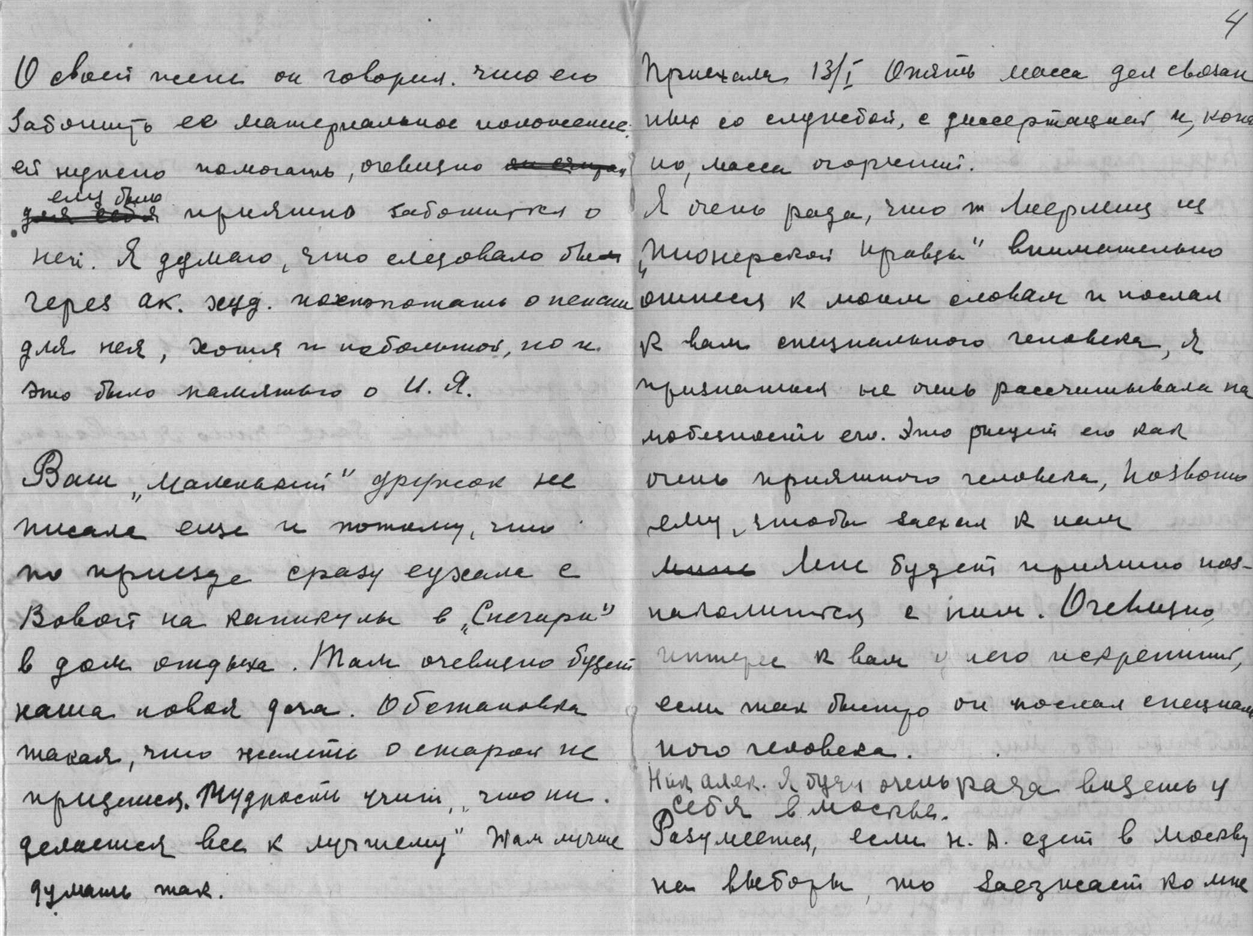 О своей жене он говорил. что его
заботить ее материальное положение.
ей нужно помогать, очевидно
ему было
приятно заботится о
ней. Я думаю, что следовало бы
через ак. худ. похлопотать о пенсии
для нея, хотя и небольшой, но и
это было памятью о И. Я.
Ваш „маленький" дружок не
писала еще и потому, что
по приезде сразу еужала с
Вовой на каникулы в „Снегири"
в дом отдыха. Там очевидно будет
наша новая дача. Обстановка
такая, что жалеть о старой не
придется. Мудрость учит, „что ни.
делается все к лучшему" Там лучше
думать так.
4
Приехала 13/I Опять масса дел связан
ных со службой, с диссертацией и, конеч
но, масса огорчений.
Я очень рада, что т из
„Пионерской правды" внимательно
отнеся к моим словам и послал
к вам специального человека, я
признаться не очень рассчитывала на
любезность его. Это рисует его как
очень приятного человека,
ему, чтобы заехал к нам
Мне будет приятно поз-
накомится с ним. Очевидно,
интерес к вам у него искренний,
если так быстро он послал специаль
ного человека.
Ник алек. Я буду очень рада видеть у
себя в москве.
Разумеется, если Н. А. едет в Москву
на выборы, то заезжает ко мне